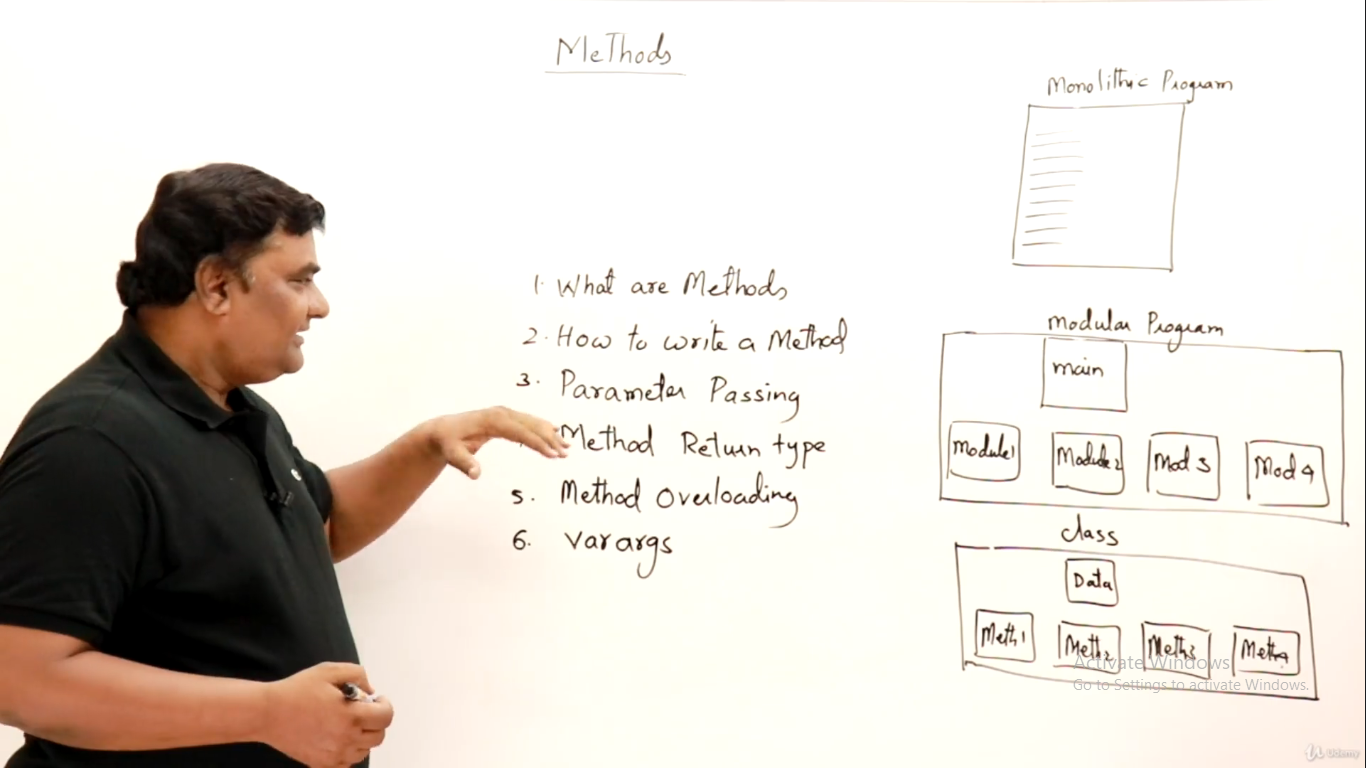 Methods
1. What are Methods
2. How to write a Method
3. Parameter Passing
Method Return type
5. Method Overloading
6. Varargs
Monolithic Program
Modular Program
main
Module1
Module2
Mod 3
Mod 4
class
Data
Meth1
Meth2
Meth3
Meth4
Activate Windows
Go to Settings to activate Windows.
Udemy